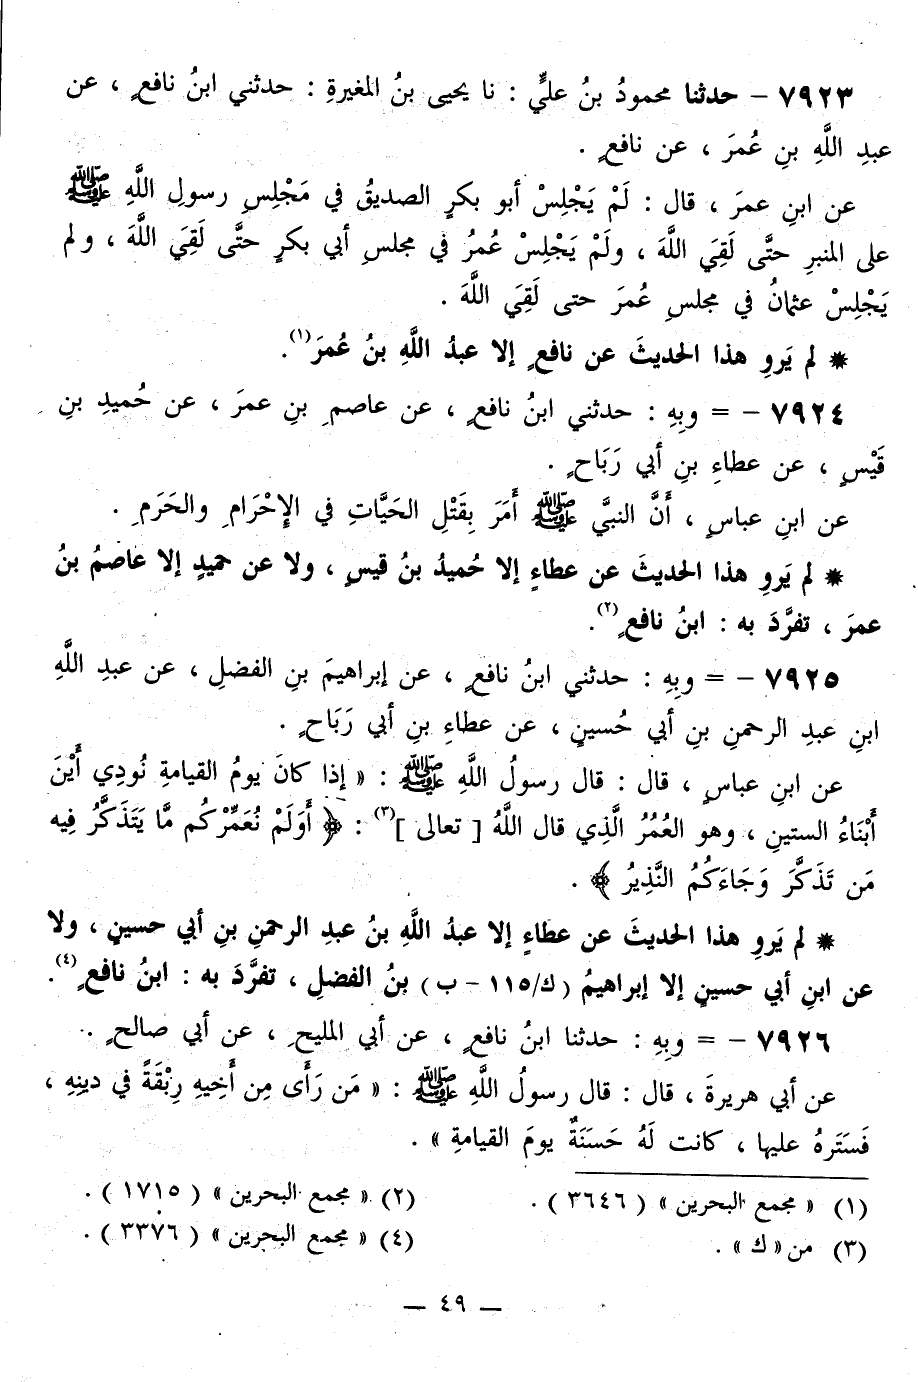 ٧٩٢٣ - حدثنا محمودُ بنُ عليٍّ : نا يحيى بنُ المغيرةِ : حدثني ابنُ نافعٍ ، عن
عبدِ اللَّهِ بنِ عُمرَ ، عن نافعٍ .
عن ابنِ عمرَ ، قال : لَمْ يَجْلِسْ أبو بكرٍ الصديقُ في مَجْلِسِ رسولِ اللَّهِ ﷺ
على المنبرِ حتَّى لَقِيَ اللَّهَ ، ولَمْ يَجْلِسْ عُمرُ في مجلسِ أبي بكرٍ حتَّى لَقِيَ اللَّهَ ، ولم
يَجْلِسْ عثمانُ في مجلسِ عُمرَ حتى لَقِيَ اللَّهَ .
* لم يَروِ هذا الحديثَ عن نافعٍ إلا عبدُ اللَّهِ بنُ عُمرَ(١).
٧٩٢٤ - = وبِهِ : حدثني ابنُ نافعٍ ، عن عاصمِ بنِ عمرَ ، عن حُميدِ بنِ
قَيْسٍ ، عن عطاءِ بنِ أبي رَبَاحٍ .
عن ابنِ عباسٍ ، أَنَّ النبيَّ ﷺ أَمَرَ بِقَتْلِ الحَيَّاتِ في الإِحْرَامِ والحَرَمِ .
* لم يَروِ هذا الحديثَ عن عطاءٍ إلا حُميدُ بنُ قيسٍ ، ولا عن حميدٍ إلا عاصمُ بنُ
عمرَ ، تفرَّدَ به : ابنُ نافعٍ(٢).
٧٩٢٥ - = وبِهِ : حدثني ابنُ نافعٍ ، عن إبراهيمَ بنِ الفضلِ ، عن عبدِ اللَّهِ
ابنِ عبدِ الرحمنِ بنِ أبي حُسينٍ ، عن عطاءِ بنِ أبي رَبَاحٍ .
عن ابنِ عباسٍ ، قال : قال رسولُ اللَّهِ ﷺ : « إذا كانَ يومُ القيامةِ نُودِي أَيْنَ
أَبْنَاءُ الستينِ ، وهو العُمُرُ الَّذِي قال اللَّهُ [ تعالى ](٣) : ﴿ أَوَلَمْ نُعَمِّرْكُم مَّا يَتَذَكَّرُ فِيه
مَن تَذَكَّرَ وَجَاءَكُمُ النَّذِيرُ ﴾ .
* لم يَروِ هذا الحديثَ عن عطاءٍ إلا عبدُ اللَّهِ بنُ عبدِ الرحمنِ بنِ أبي حسينٍ ، ولا
عن ابنِ أبي حسينٍ إلا إبراهيمُ (ك/١١٥ - ب) بنُ الفضلِ ، تفرَّدَ به : ابنُ نافعٍ(٤).
٧٩٢٦ - = وبِهِ : حدثنا ابنُ نافعٍ ، عن أبي المليحِ ، عن أبي صالحٍ .
عن أبي هريرةَ ، قال : قال رسولُ اللَّهِ ﷺ : « مَن رَأَى مِن أَخِيهِ رِبْقَةً في دينِهِ ،
فَسَتَرهُ عليها ، كانت لَهُ حَسَنَةٌ يومَ القيامةِ » .
(١) « مجمع البحرين » ( ٣٦٤٦ ) . (٢) « مجمع البحرين » ( ١٧١٥ ) .
(٣) من « ك » . (٤) « مجمع البحرين » ( ٣٣٧٦ ) .
— ٤٩ —